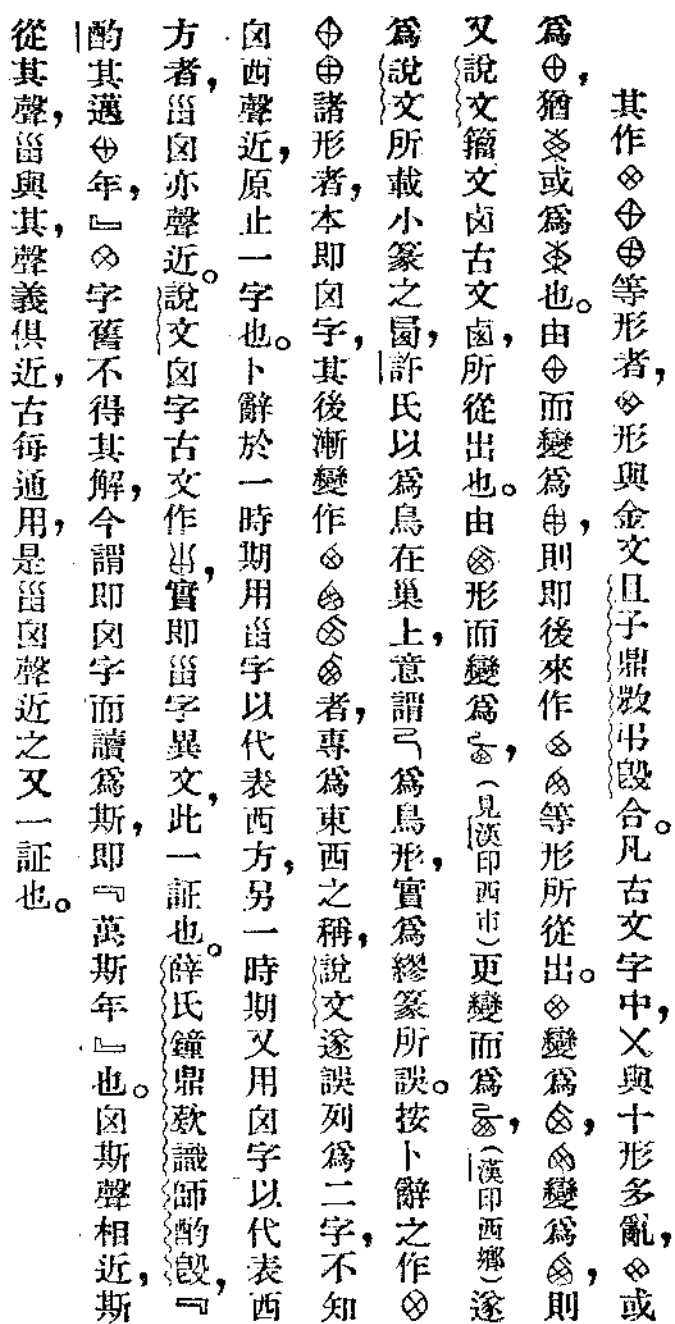 其作等形者，形與金文且子鼎㪤弔㲃合。凡古文字中，乂與十形多亂，或
爲，猶或爲也。由而變爲，則即後來作等形所從出。變爲，變爲，則
又說文籀文卥古文卤，所從出也。由形而變爲，（見漢印西市）更變而爲，（漢印西鄉）遂
爲說文所載小篆之，許氏以爲鳥在巢上，意謂爲鳥形，實爲繆篆所誤。按卜辭之作
諸形者，本即囟字，其後漸變作者，專爲東西之稱，說文遂誤列爲二字，不知
囟西聲近，原止一字也。卜辭於一時期用甾字以代表西方，另一時期又用囟字以代表西
方者，甾囟亦聲近。說文囟字古文作，實即甾字異文，此一証也。薛氏鐘鼎欵識師㝬㲃，『
㝬其邁年，』字舊不得其解，今謂即囟字而讀爲斯，即『萬斯年』也。囟斯聲相近，斯
從其聲，甾與其，聲義俱近，古每通用，是甾囟聲近之又一証也。